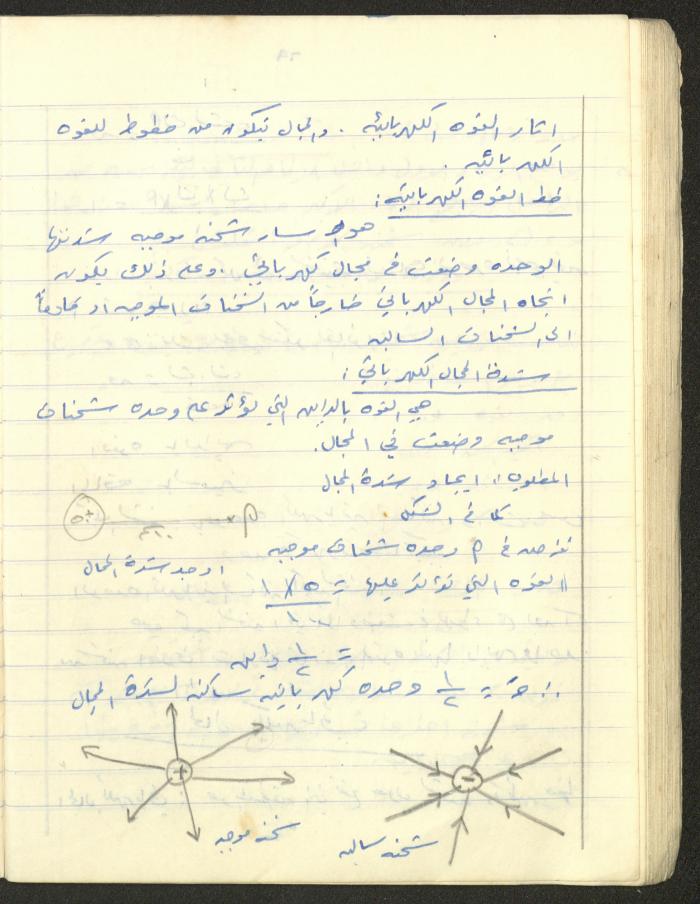 اثار القوه الكهربائيه . والمجال يتكون من خطوط للقوه
الكهربائيه .
خط القوه الكهربائيه :
هو مسار شحنة موجبه شدتها
الوحده وضعت في مجال كهربائي . وعلى ذلك يكون
اتجاه المجال الكهربائي خارجاً من الشحنات الموجبه او
الى الشحنات السالبه
شدة المجال الكهربائي :
هي القوه بالداين التي تؤثر على وحدة شحنات
موجبه وضعت في المجال .
المطلوب : ايجاد شدة المجال
كما في الشكل
نفرض في م وحدة شحنات موجبه
اوجد شدة المجال
القوه التي تؤثر عليها = ٥٠ × ١
= ١/٢ داين
∴ = ١/٢ وحده كهربائيه ساكنه لشدة المجال
+
-
شحنه موجبه
شحنه سالبه